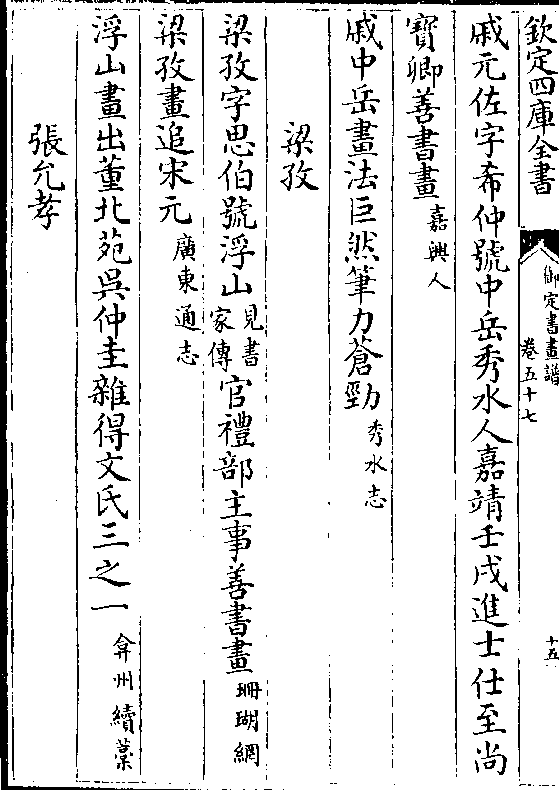 欽定四庫全書
御定書畫譜
卷五十七
十五
戚元佐字希仲號中岳秀水人嘉靖壬戌進士仕至尚
寳卿善書畫嘉興人
戚中岳畫法巨然筆力蒼勁秀水志
梁孜
梁孜字思伯號浮山見書家傳官禮部主事善書畫珊瑚網
梁孜畫追宋元廣東通志
浮山畫出董北苑吳仲圭雜得文氏三之一弇州續藁
張允孝